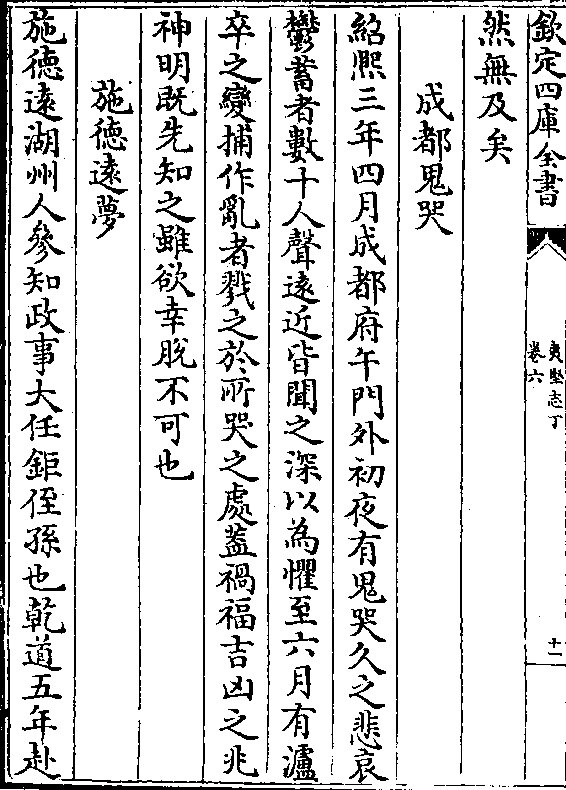 欽定四庫全書
夷堅志丁
卷六
十一
然無及矣
成都鬼哭
紹熙三年四月成都府午門外初夜有鬼哭久之悲哀
鬱蓄者數十人聲逺近皆聞之深以為懼至六月有瀘
卒之變捕作亂者戮之於所哭之處蓋禍福吉凶之兆
神明既先知之雖欲幸脫不可也
施德逺夢
施德逺湖州人參知政事大任鉅侄孫也乾道五年赴